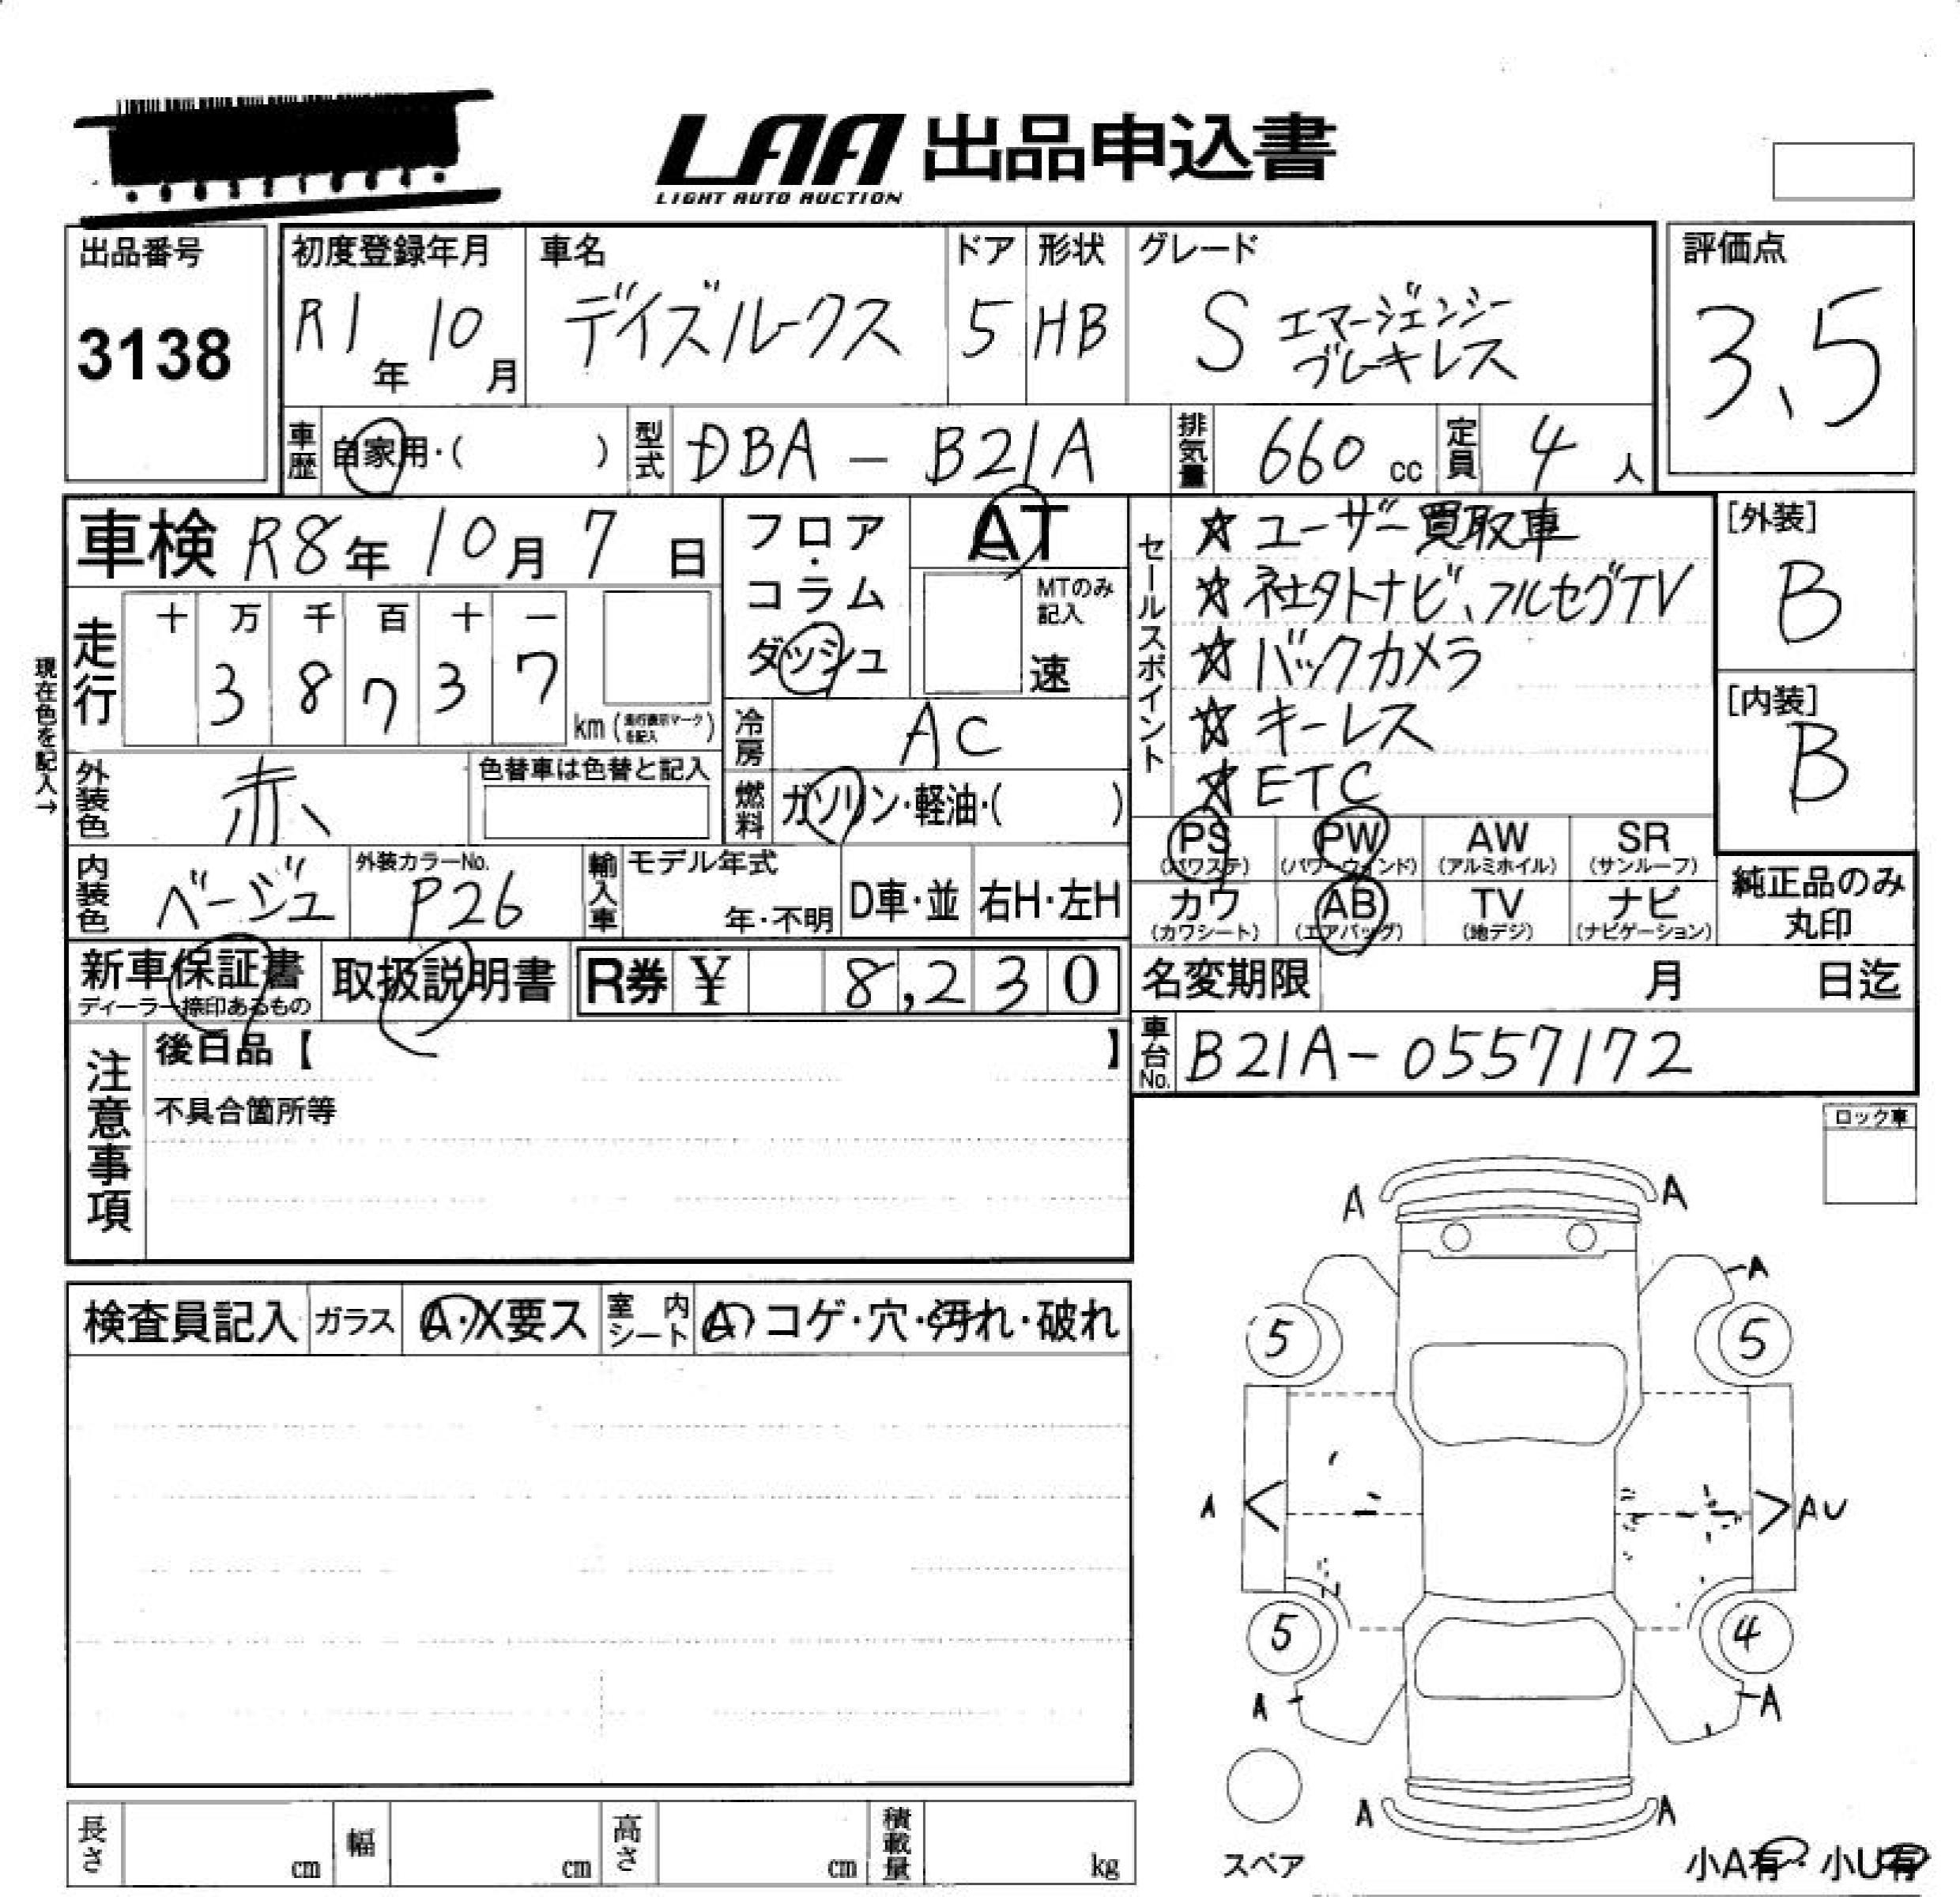 LAA 出品申込書
LIGHT AUTO AUCTION
出品番号
3138
初度登録年月
R1年 10月
車名
デイズルークス
ドア
5
形状
HB
グレード
S エマージェンシー
ブレーキレス
評価点
3、5
車歴 自家用・( )
型式 DBA - B21A
排気量 660 cc
定員 4 人
車検 R8年 10月 7日
走行
十 万 千 百 十 一
3 8 7 3 7
km (走行表示マークを記入)
現在色を記入→
外装色 赤
色替車は色替と記入
内装色 ベージュ
外装カラーNo.
P26
フロア・コラム
ダッシュ
AT
MTのみ記入
速
冷房 AC
燃料 ガソリン・軽油・( )
輸入車
モデル年式
年・不明
D車・並
右H・左H
セールスポイント
☆ ユーザー買取車
☆ 社外ナビ、フルセグTV
☆ バックカメラ
☆ キーレス
☆ ETC
[外装]
B
[内装]
B
PS (パワステ)
PW (パワーウィンド)
AW (アルミホイル)
SR (サンルーフ)
カワ (カワシート)
AB (エアバッグ)
TV (地デジ)
ナビ (ナビゲーション)
純正品のみ
丸印
新車保証書
ディーラー捺印あるもの
取扱説明書
R券 ¥ 8,230
名変期限 月 日迄
車台No. B21A-0557172
注意事項
後日品【 】
不具合箇所等
ロック車
検査員記入
ガラス A・X要ス
室内シート A コゲ・穴・汚れ・破れ
A A
A
5 5
A AU
5 4
A A
A A
スペア
小A有・小U有
長さ cm
幅 cm
高さ cm
積載量 kg